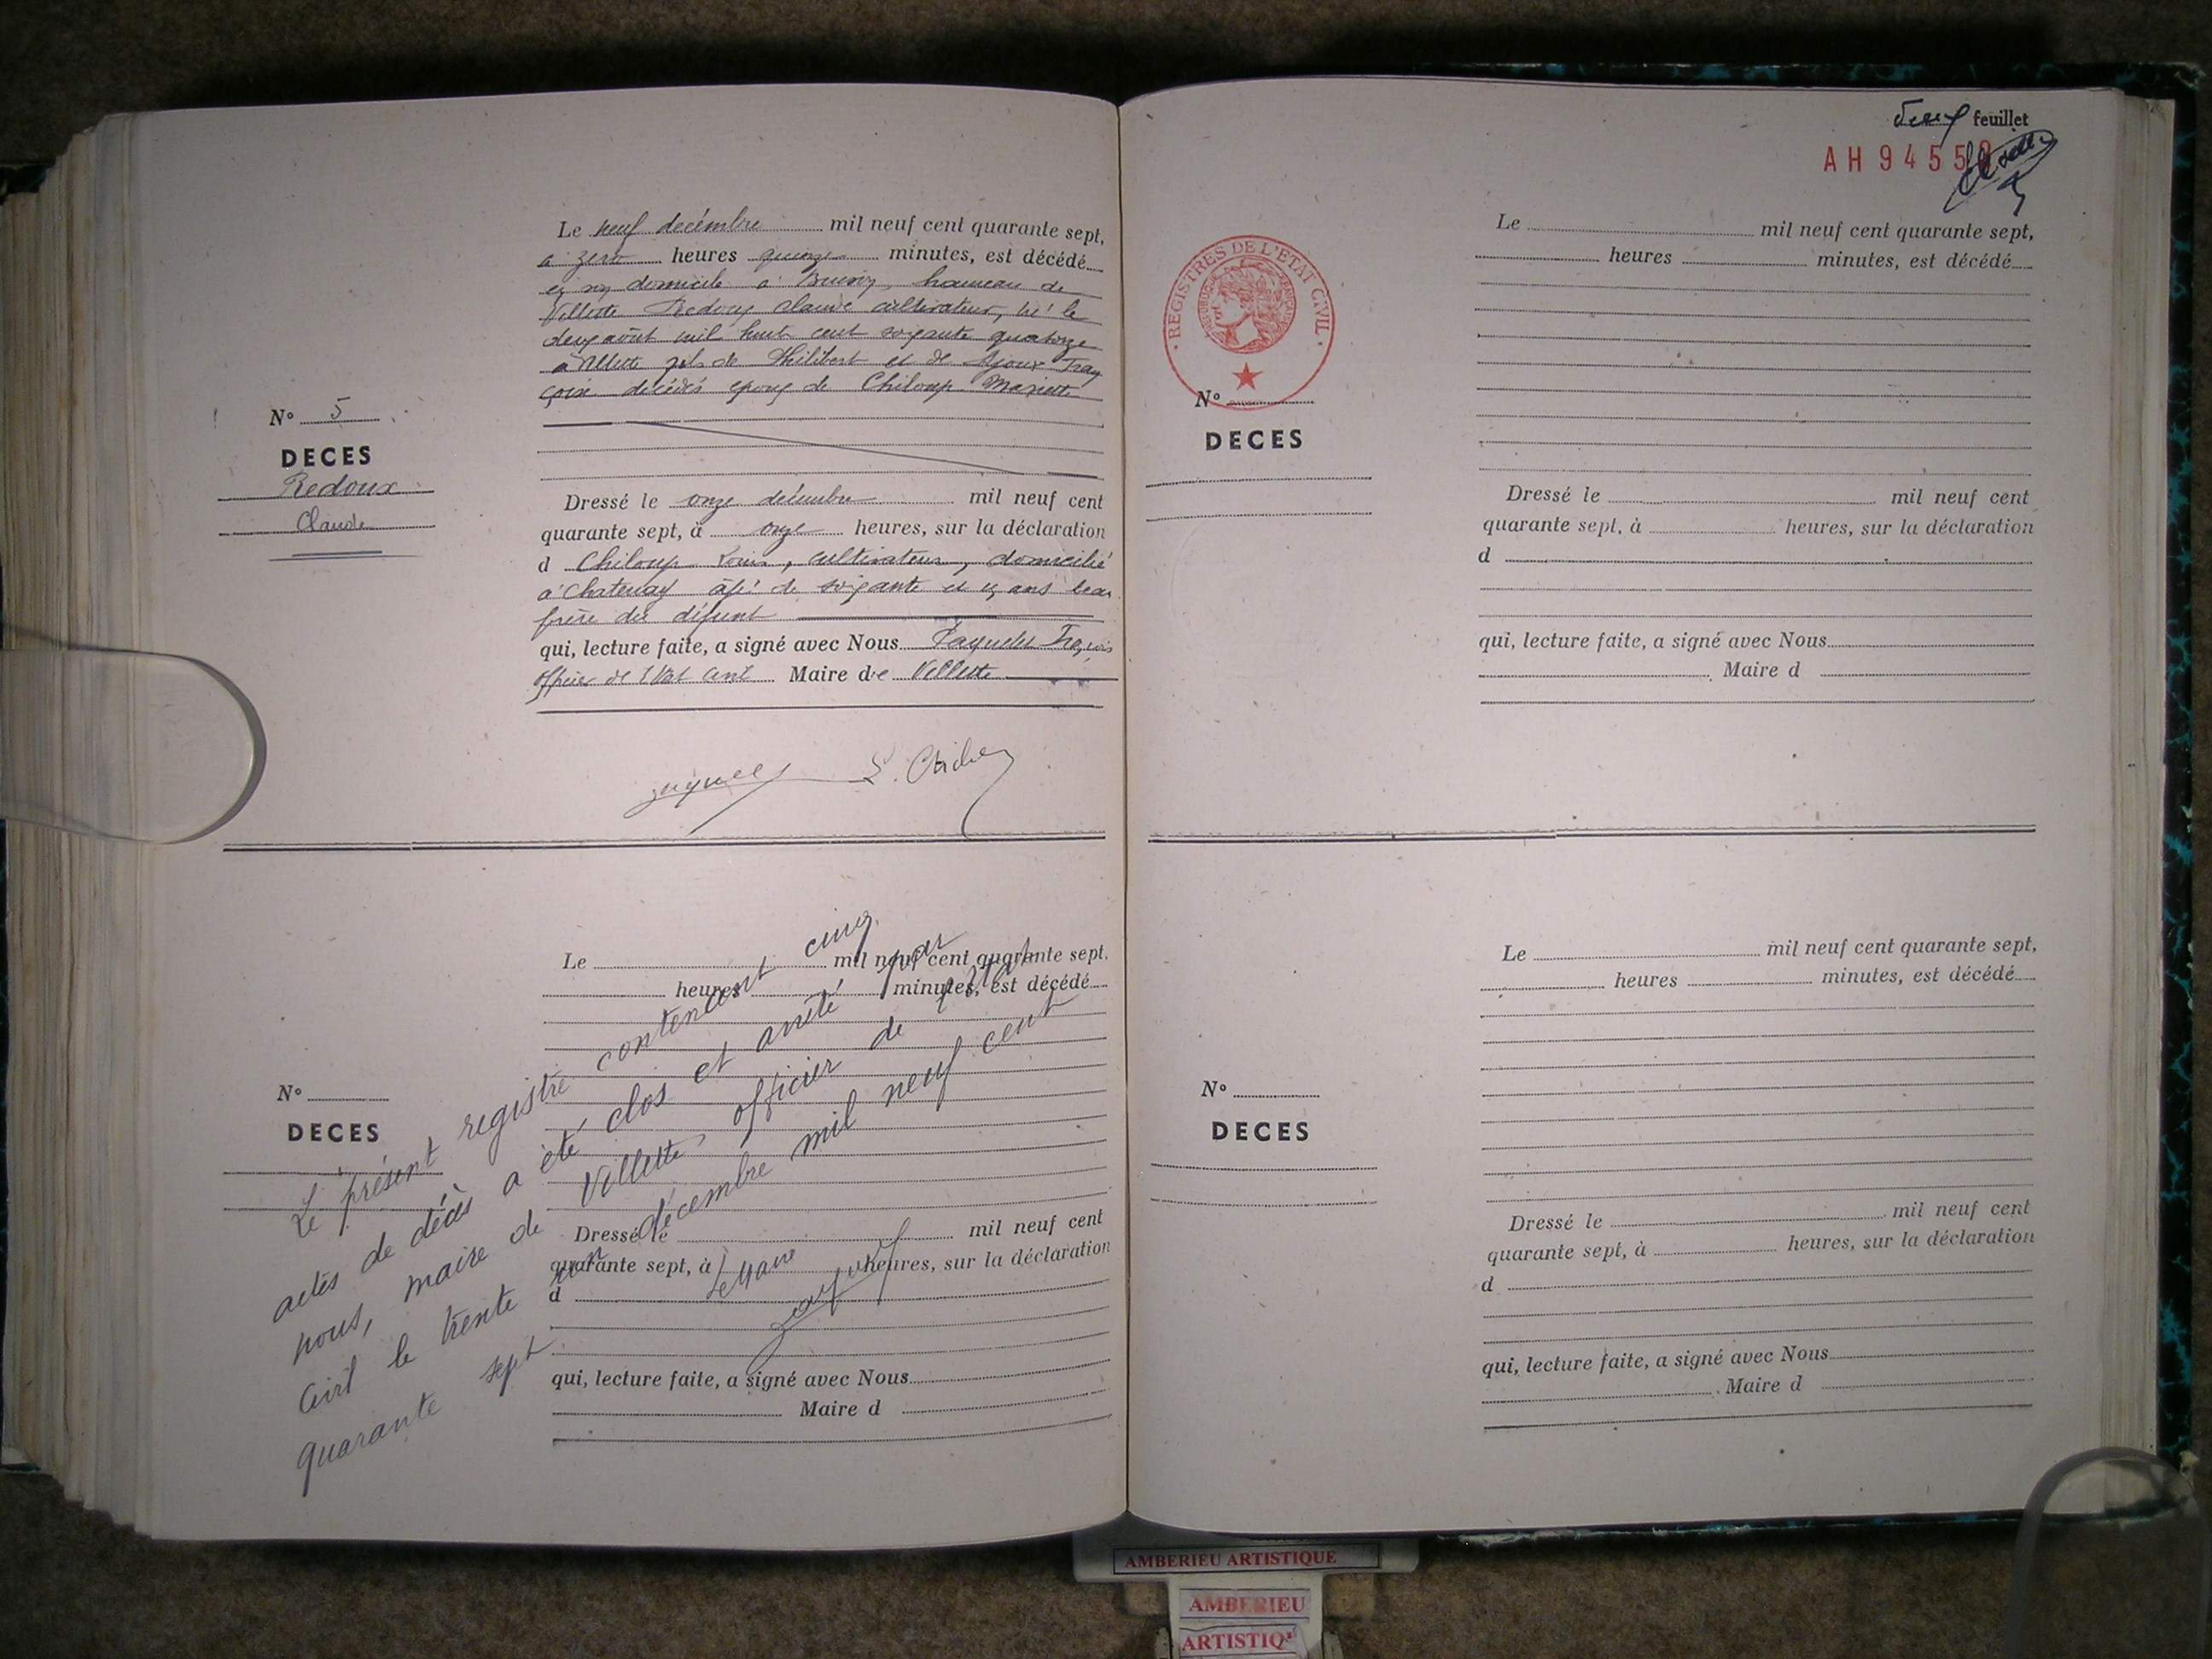 Le neuf decémbre mil neuf cent quarante sept,
à zero heures quinze minutes, est décédé
en son domicile à hameau de
Villette Redoux Claude cultivateur, né le
deux août mil huit cent soixante quatorze
à Villette fils de Philibert et de Ajoux Fran
çoise décédés epoux de Chiloup Mariette
N° 5
DECES
Redoux
Claude
Dressé le onze decembre mil neuf cent
quarante sept, à onze heures, sur la déclaration
d Chiloup Louis, cultivateur, domicilié
à Chatenay âgé de soixante et un ans beau
frère du défunt
qui, lecture faite, a signé avec Nous Paquelet François
officier de l'Etat civil Maire de Villette
Le mil neuf cent quarante sept,
heures minutes, est décédé
N°
DECES
Dressé le mil neuf cent
quarante sept, à heures, sur la déclaration
d
qui, lecture faite, a signé avec Nous
Maire d
Le présent registre contenant cinq
actes de décès a été clos et arrêté par
nous, maire de Villette, officier de l'état
Civil le trente un décembre mil neuf cent
quarante sept
Le Maire
feuillet
AH 9455
REGISTRES DE L'ETAT CIVIL
Le mil neuf cent quarante sept,
heures minutes, est décédé
N°
DECES
Dressé le mil neuf cent
quarante sept, à heures, sur la déclaration
d
qui, lecture faite, a signé avec Nous
Maire d
Le mil neuf cent quarante sept,
heures minutes, est décédé
N°
DECES
Dressé le mil neuf cent
quarante sept, à heures, sur la déclaration
d
qui, lecture faite, a signé avec Nous
Maire d
AMBERIEU ARTISTIQUE
AMBERIEU
ARTISTIQ